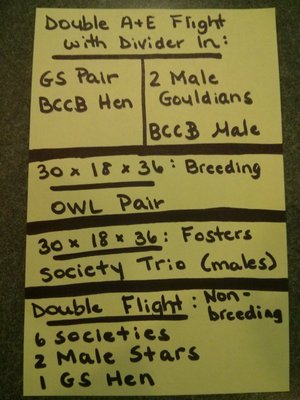 Double A+E Flight
with Divider In:
GS Pair
BCCB Hen
2 Male
Gouldians
BCCB Male
30 x 18 x 36: Breeding
OWL Pair
30 x 18 x 36: Fosters
Society Trio (males)
Double Flight: Non-
breeding
6 Societies
2 Male Stars
1 GS Hen